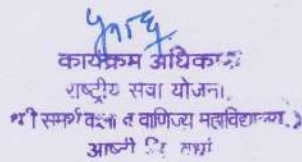 कार्यक्रम अधिकारी
राष्ट्रीय सेवा योजना,
श्री समर्थ कला व वाणिज्य महाविद्यालय,
आष्टी